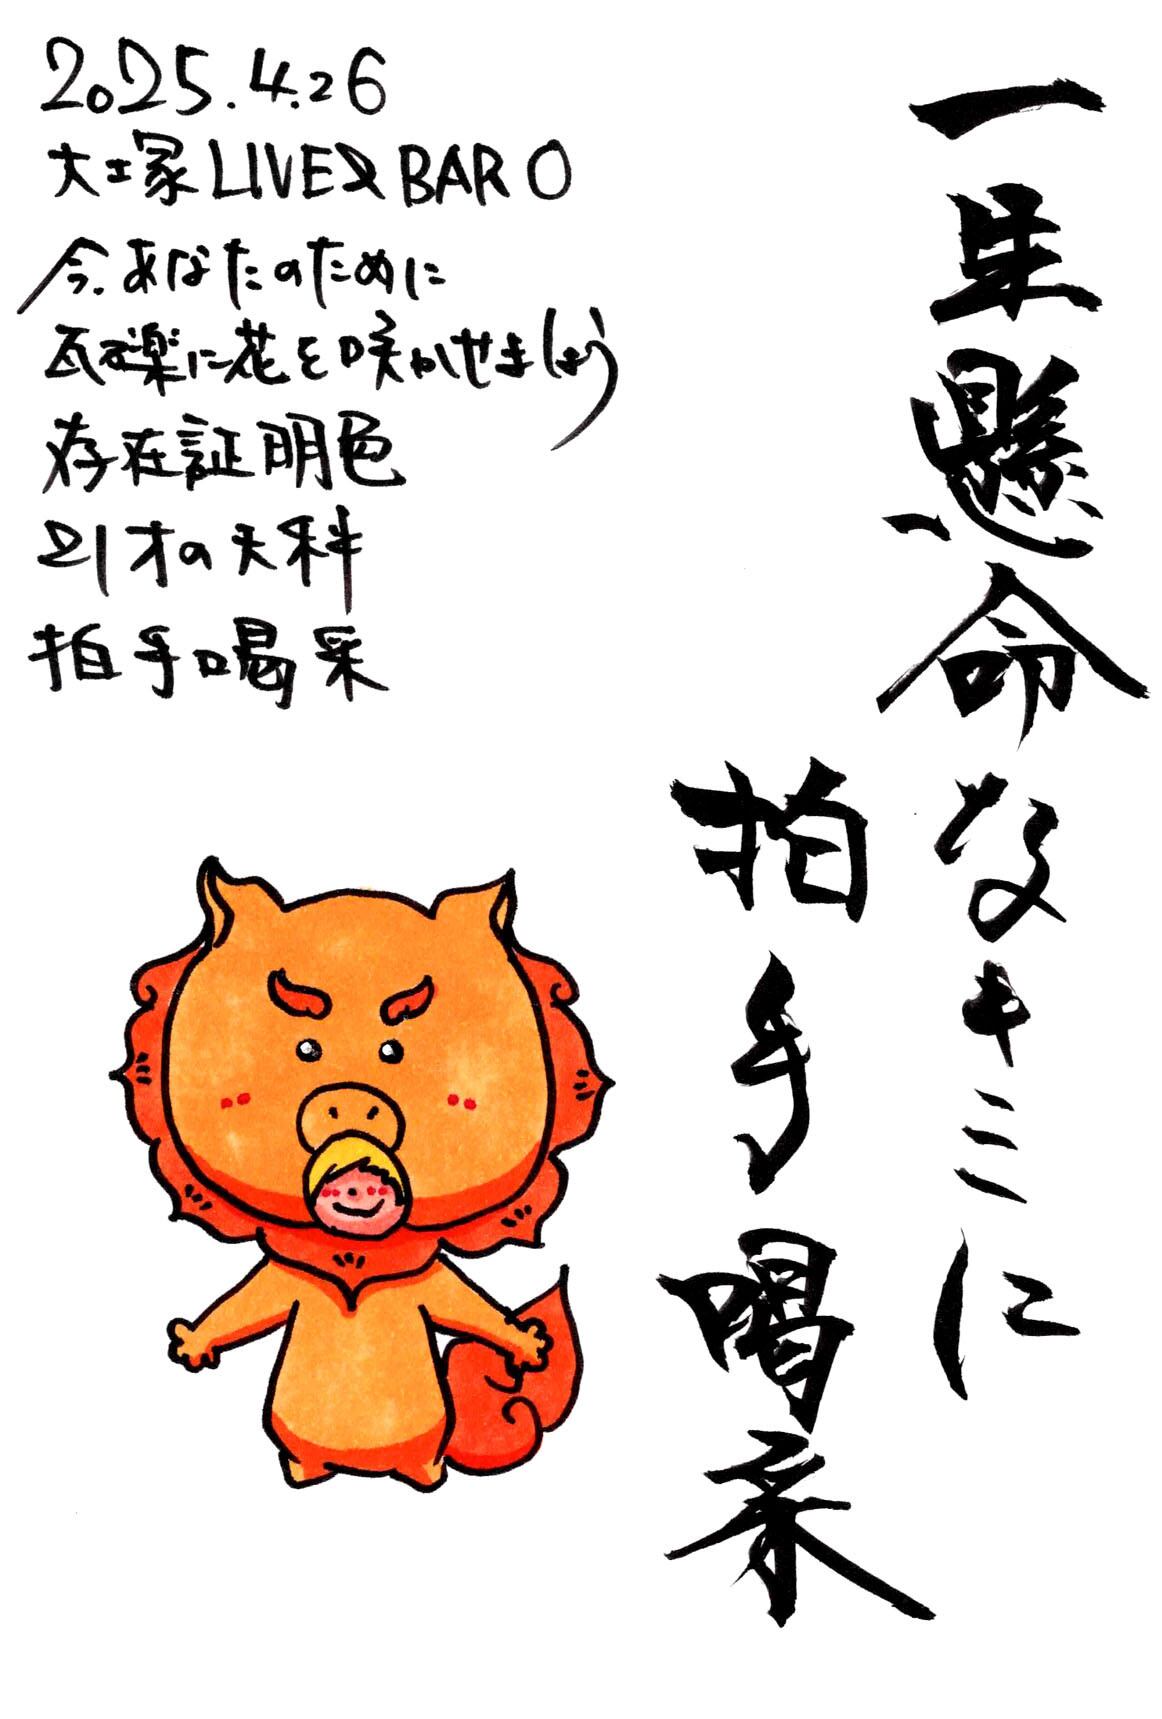 2025.4.26
大塚LIVE&BAR O
今、あなたのために
瓦礫に花を咲かせましょう
存在証明色
21才の天科
拍手喝采
一生懸命なキミに
拍手喝采